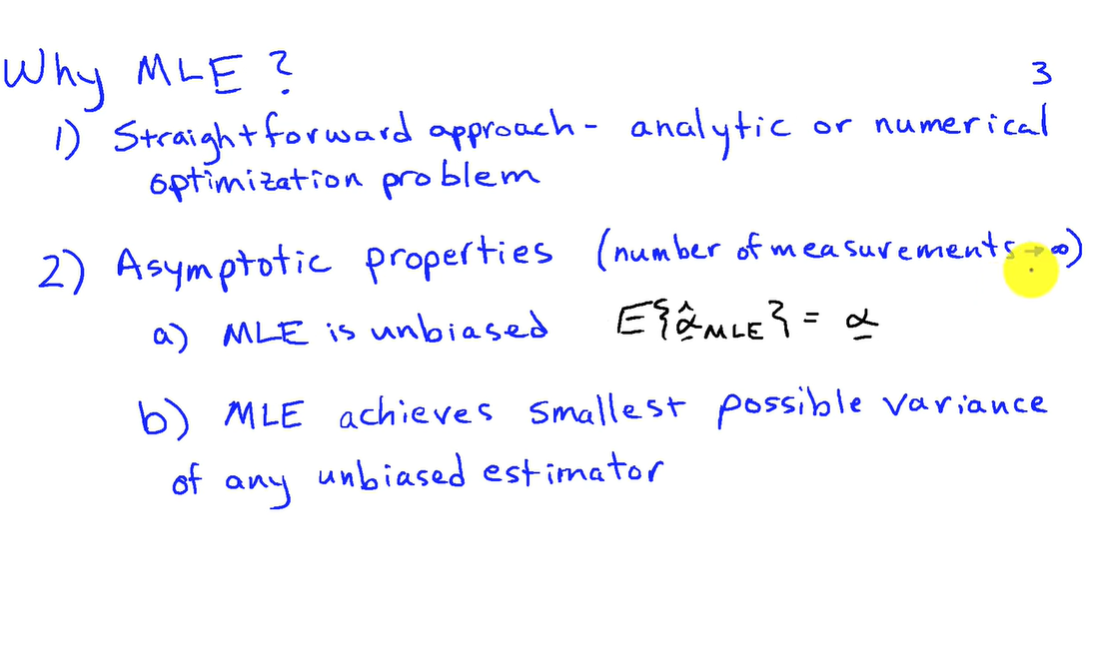 Why MLE ?
3
1) Straightforward approach - analytic or numerical
optimization problem
2) Asymptotic properties (number of measurements → ∞)
a) MLE is unbiased E{α̂_MLE} = α
b) MLE achieves smallest possible variance
of any unbiased estimator